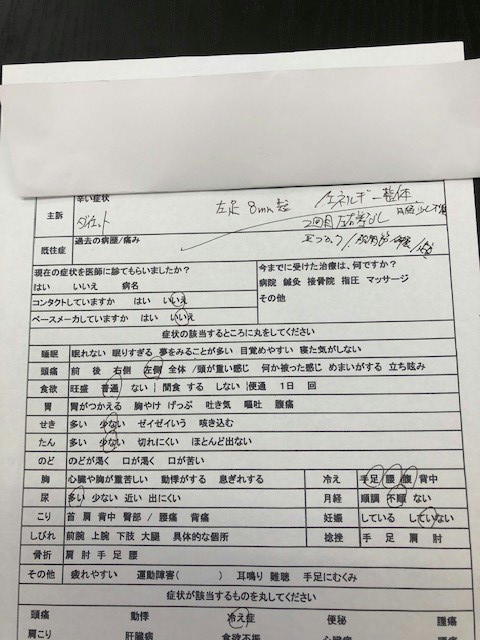 辛い症状
主訴 ダイエット 左足 8mm エネルギー整体
2回目 左右差なし
既往症 過去の病歴/痛み
現在の症状を医師に診てもらいましたか?
はい いいえ 病名
今までに受けた治療は、何ですか?
病院 鍼灸 接骨院 指圧 マッサージ
その他
コンタクトしていますか はい いいえ
ペースメーカしていますか はい いいえ
症状の該当するところに丸をしてください
睡眠 眠れない 眠りすぎる 夢をみることが多い 目覚めやすい 寝た気がしない
頭痛 前 後 右側 左側 全体 /頭が重い感じ 何か被った感じ めまいがする 立ち眩み
食欲 旺盛 普通 ない | 間食 する しない |便通 1日 回
胃 胃がつかえる 胸やけ げっぷ 吐き気 嘔吐 腹痛
せき 多い 少ない ゼイゼイいう 咳き込む
たん 多い 少ない 切れにくい ほとんど出ない
のど のどが渇く 口が渇く 口が苦い
胸 心臓や胸が重苦しい 動悸がする 息ぎれする 冷え 手足 腰 腹 背中
尿 多い 少ない 近い 出にくい 月経 順調 不順 ない
こり 首 肩 背中 臀部 / 腰痛 背痛 妊娠 している していない
しびれ 前腕 上腕 下肢 大腿 具体的な個所 捻挫 手 足 肩 肘
骨折 肩 肘 手 足 腰
その他 疲れやすい 運動障害( ) 耳鳴り 難聴 手足にむくみ
症状が該当するものを丸してください
頭痛 動悸 冷え症 便秘 腰痛
肩こり 肝臓病 食欲不振 心臓病